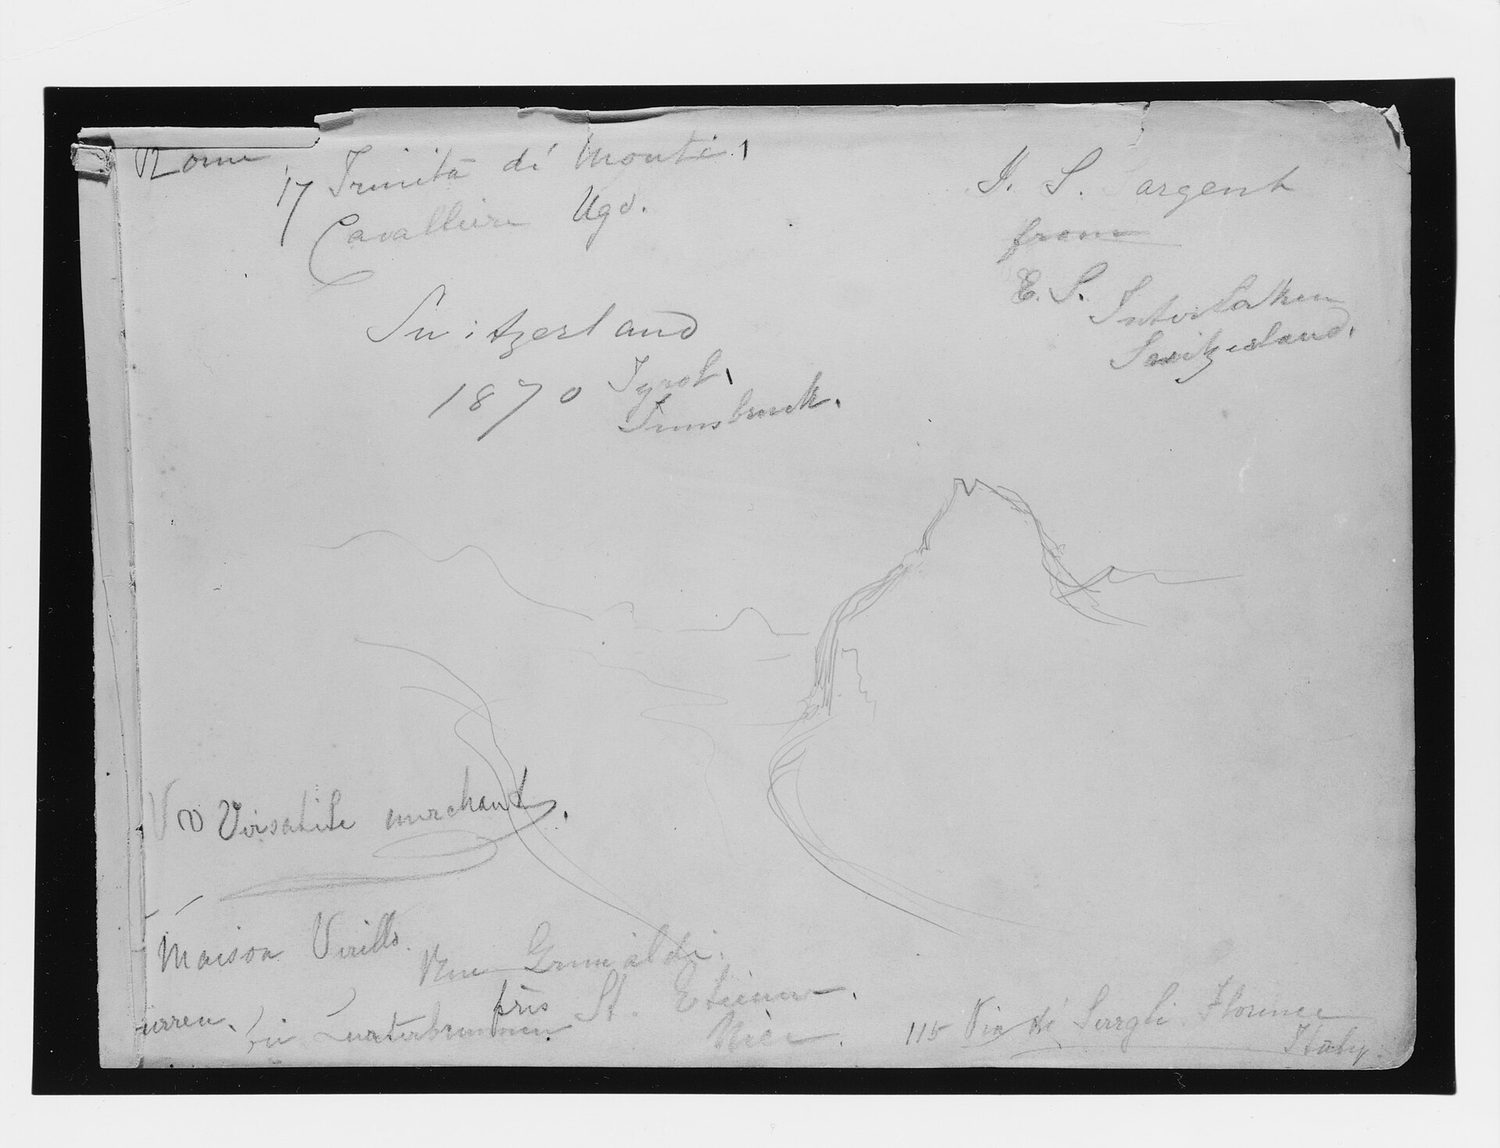 Rome
17 Trinità di Monti.
Cavalliere Ugo.
J. S. Sargent
from
E. S. Interlaken
Switzerland.
Switzerland
1870 Tyrol,
Innsbruck.
Versatile merchant.
Maison Virillo.
Rue Grimaldi.
près St. Etienne.
Nice.
urren. bei Lauterbrunnen
115 Via dé Serragli Florence
Italy.